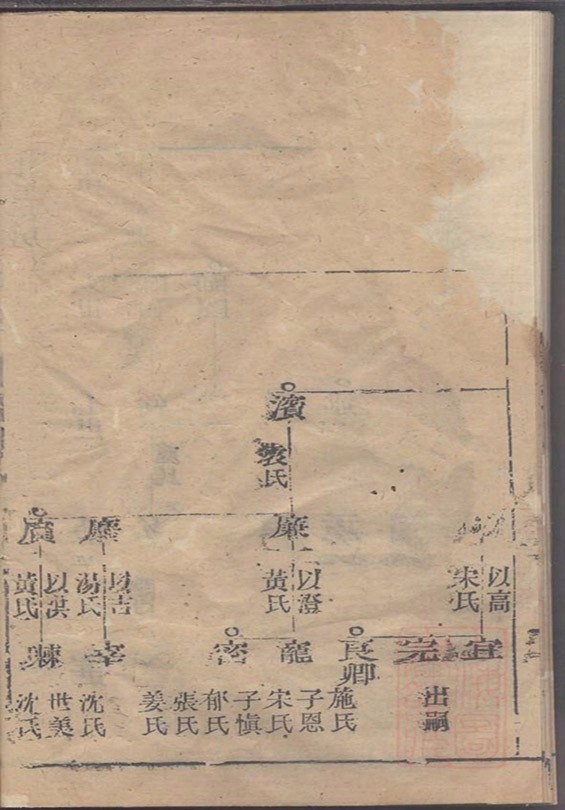 濱
裴氏
以高
宋氏
廉
以澄
黃氏
以吉
湯氏
廣
以洪
黃氏
宜
完
出嗣
良卿
施氏
龍
子恩
宋氏
密
子愼
郁氏
張氏
姜氏
宰
沈氏
世美
沈氏